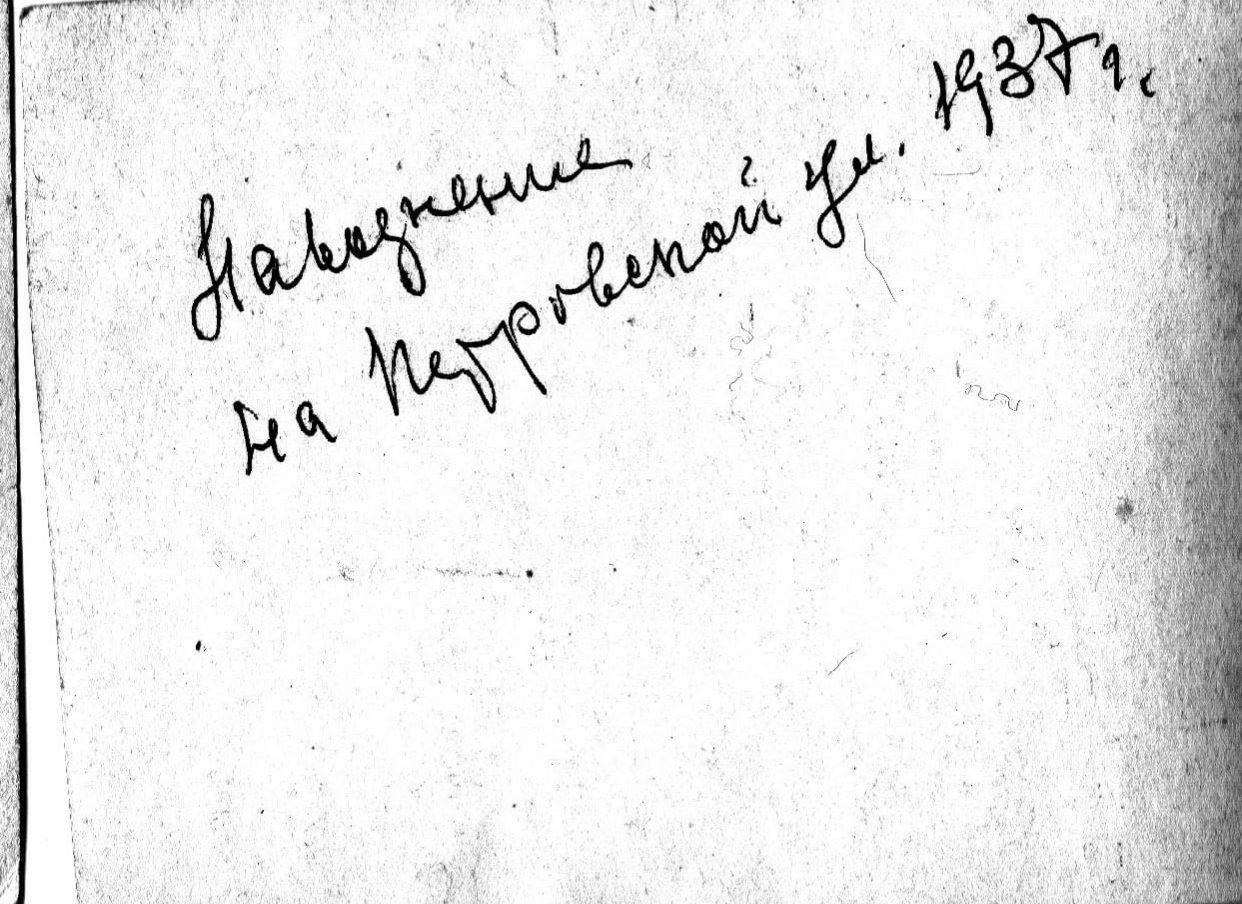 Наводнение
на Петровской ул. 1937 г.